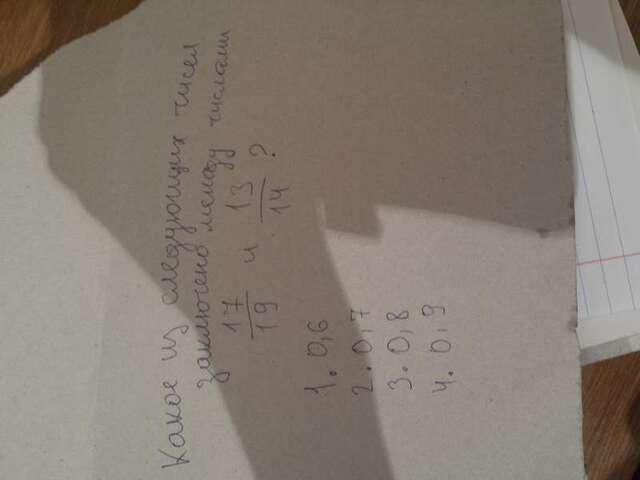 Какое из следующих чисел
заключено между числами
17/19 и 13/14 ?
1. 0,6
2. 0,7
3. 0,8
4. 0,9